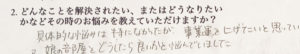 2. どんなことを解決されたい、またはどうなりたい
かなどその時のお悩みを教えていただけますか?
具体的な小悩みは特になかたが、事業運を上げたいと思ってい
娘の部屋をどうしたら良いかと悩んでいました